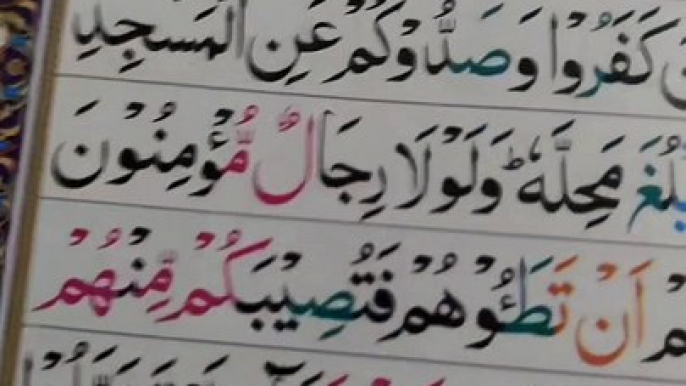 كَفَرُوْا وَصَدُّوْكُمْ عَنِ الْمَسْجِدِ
يَّبْلُغَ مَحِلَّهٗ ؕ وَلَوْلَا رِجَالٌ مُّؤْمِنُوْنَ
اَنْ تَطَـُٔوْهُمْ فَتُصِيْبَكُمْ مِّنْهُمْ